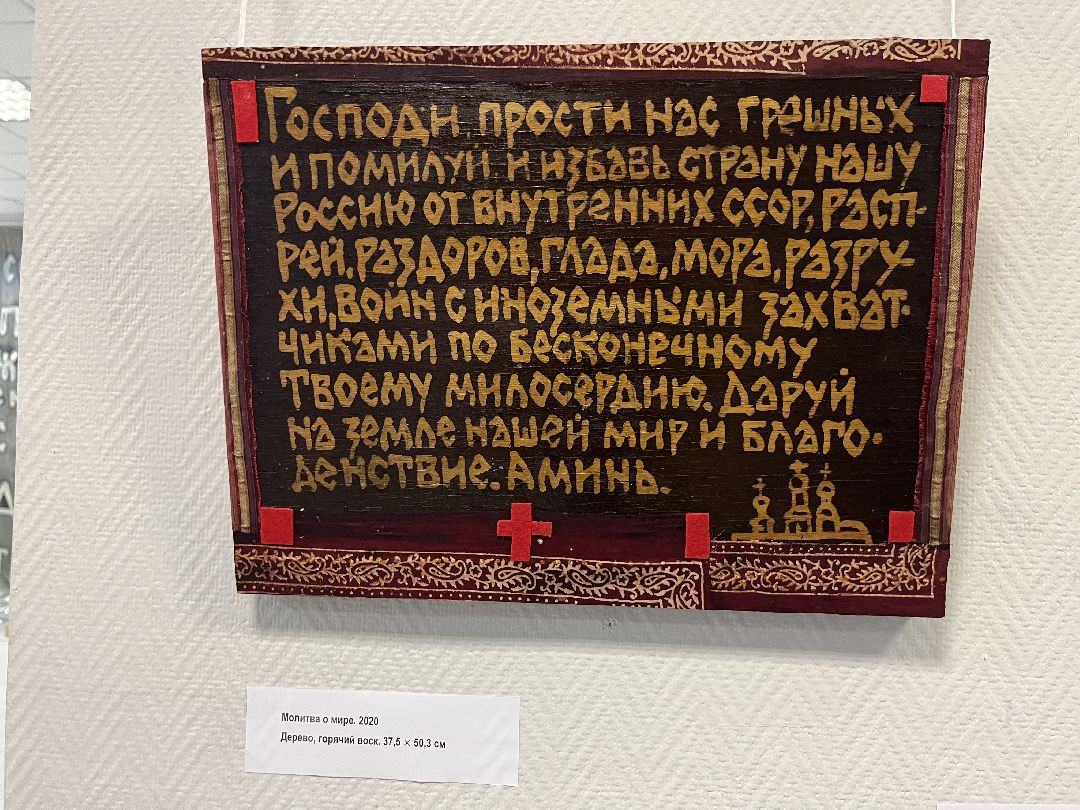 Господи, прости нас грешных
и помилуй и избавь страну нашу
Россию от внутренних ссор, расп-
рей, раздоров, глада, мора, разру-
хи, войн с иноземными захват-
чиками по бесконечному
Твоему милосердию. Даруй
на земле нашей мир и благо-
действие. Аминь.
Молитва о мире. 2020
Дерево, горячий воск. 37,5 × 50,3 см